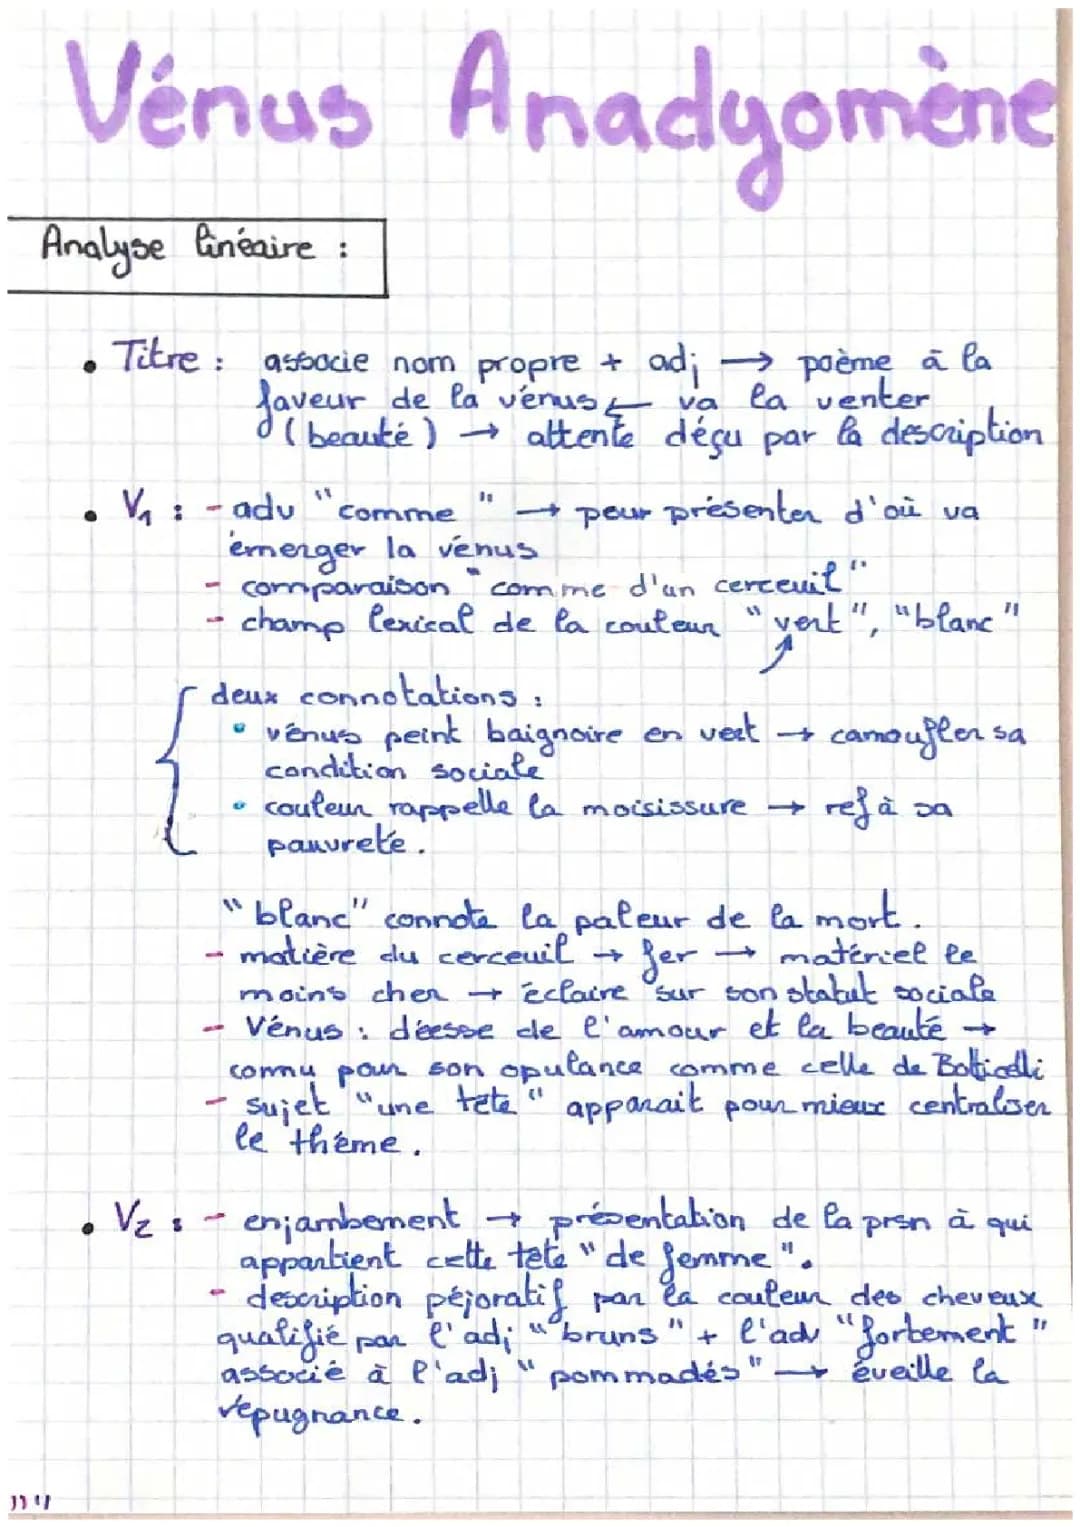 Vénus Anadyomène
Analyse linéaire :
• Titre : associe nom propre + adj → poème à la
faveur de la vénus ← va la venter
(beauté) → attente déçu par la description
• V1 : - adv "comme" → pour présenter d'où va
émerger la vénus
- comparaison "comme d'un cerceuil"
- champ lexical de la couleur "vert", "blanc"
deux connotations :
• vénus peint baignoire en vert → camoufler sa
condition sociale
• couleur rappelle la moisissure → ref à sa
pauvreté.
"blanc" connote la paleur de la mort.
- matière du cerceuil → fer → matériel le
moins cher → éclaire sur son statut sociale
- Vénus : déesse de l'amour et la beauté →
connu pour son opulance comme celle de Botticelli
- sujet "une tete" apparait pour mieux centraliser
le thème.
• V2 : - enjambement → présentation de la prsn à qui
appartient cette tete "de femme".
- description péjoratif par la couleur des cheveux
qualifié par l'adj "bruns" + l'adv "fortement"
associé à l'adj "pommadés" → éveille la
répugnance.